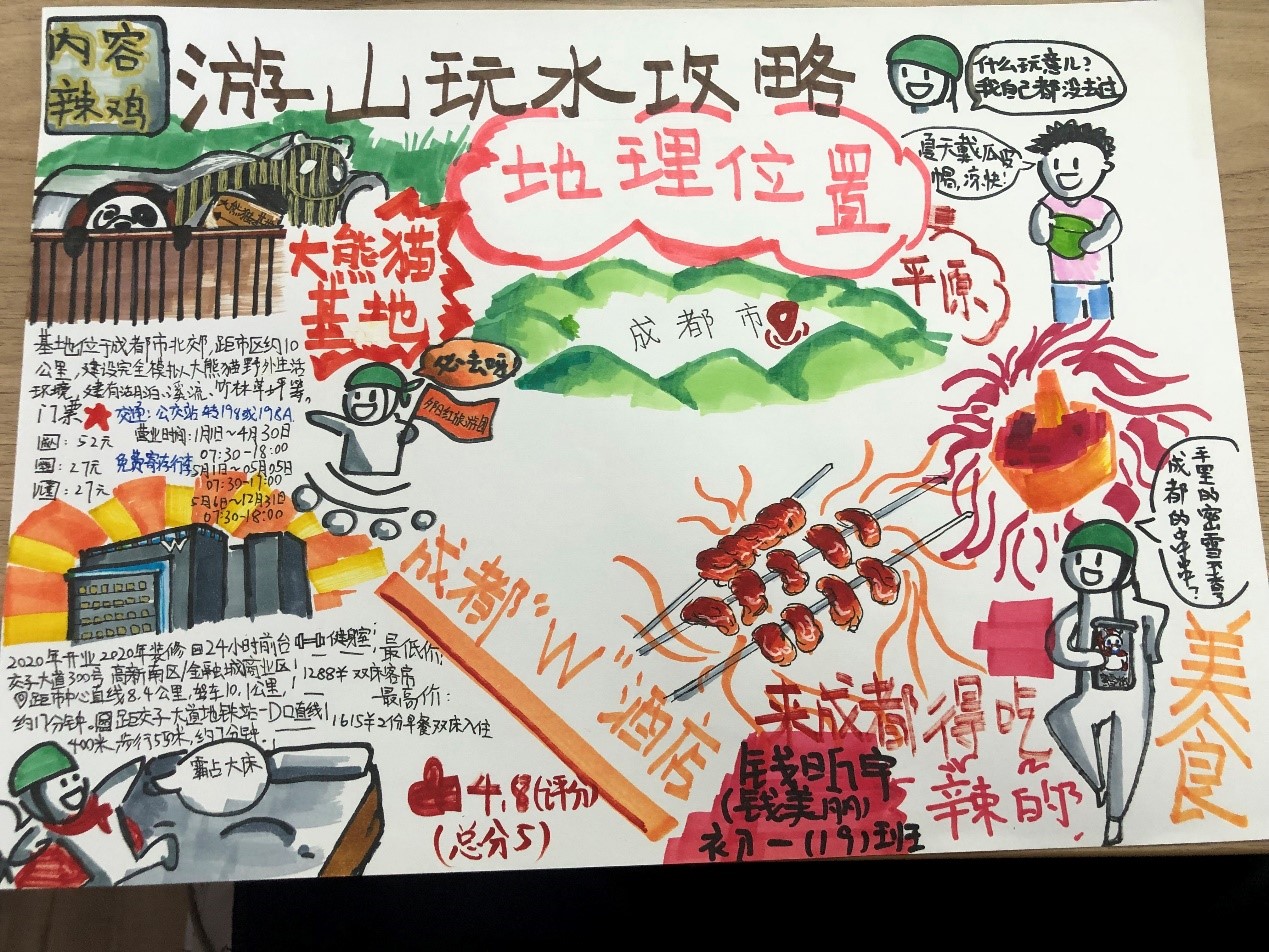 内容
辣鸡
游山玩水攻略
什么玩意儿?
我自己都没去过
地理位置
夏天戴瓜皮
帽,凉快!
平原
成都市
大熊猫
基地
必去呀
夕阳红旅游团
基地位于成都市北郊,距市区约10
公里,建设完全模拟大熊猫野外生活
环境,建有湖泊、溪流、竹林草坪等。
门票
交通:公交站 特198或198A
营业时间:1月1日~4月30日
07:30-18:00
:52元
:27元
免费寄存行李
5月1日~05月05日
07:30-17:00
:27元
5月6日~12月31日
07:30-18:00
手里的蜜雪不香了
成都的串串?
W
成都"W"酒店
2020年开业 2020年装修 24小时前台 健身室;
交子大道300号 高新南区/金融城商业区
距市中心直线8.4公里,驾车10.1公里,
约17分钟。距交子大道地铁站-D口直线
400米,步行559米,约7分钟。
最低价:
1288¥ 双床客房
最高价:
1615¥2份早餐双床入住
霸占大床
4.8(评分)
(总分5)
美食
来成都得吃
辣的
钱昕宇
(钱美丽)
初一(19)班